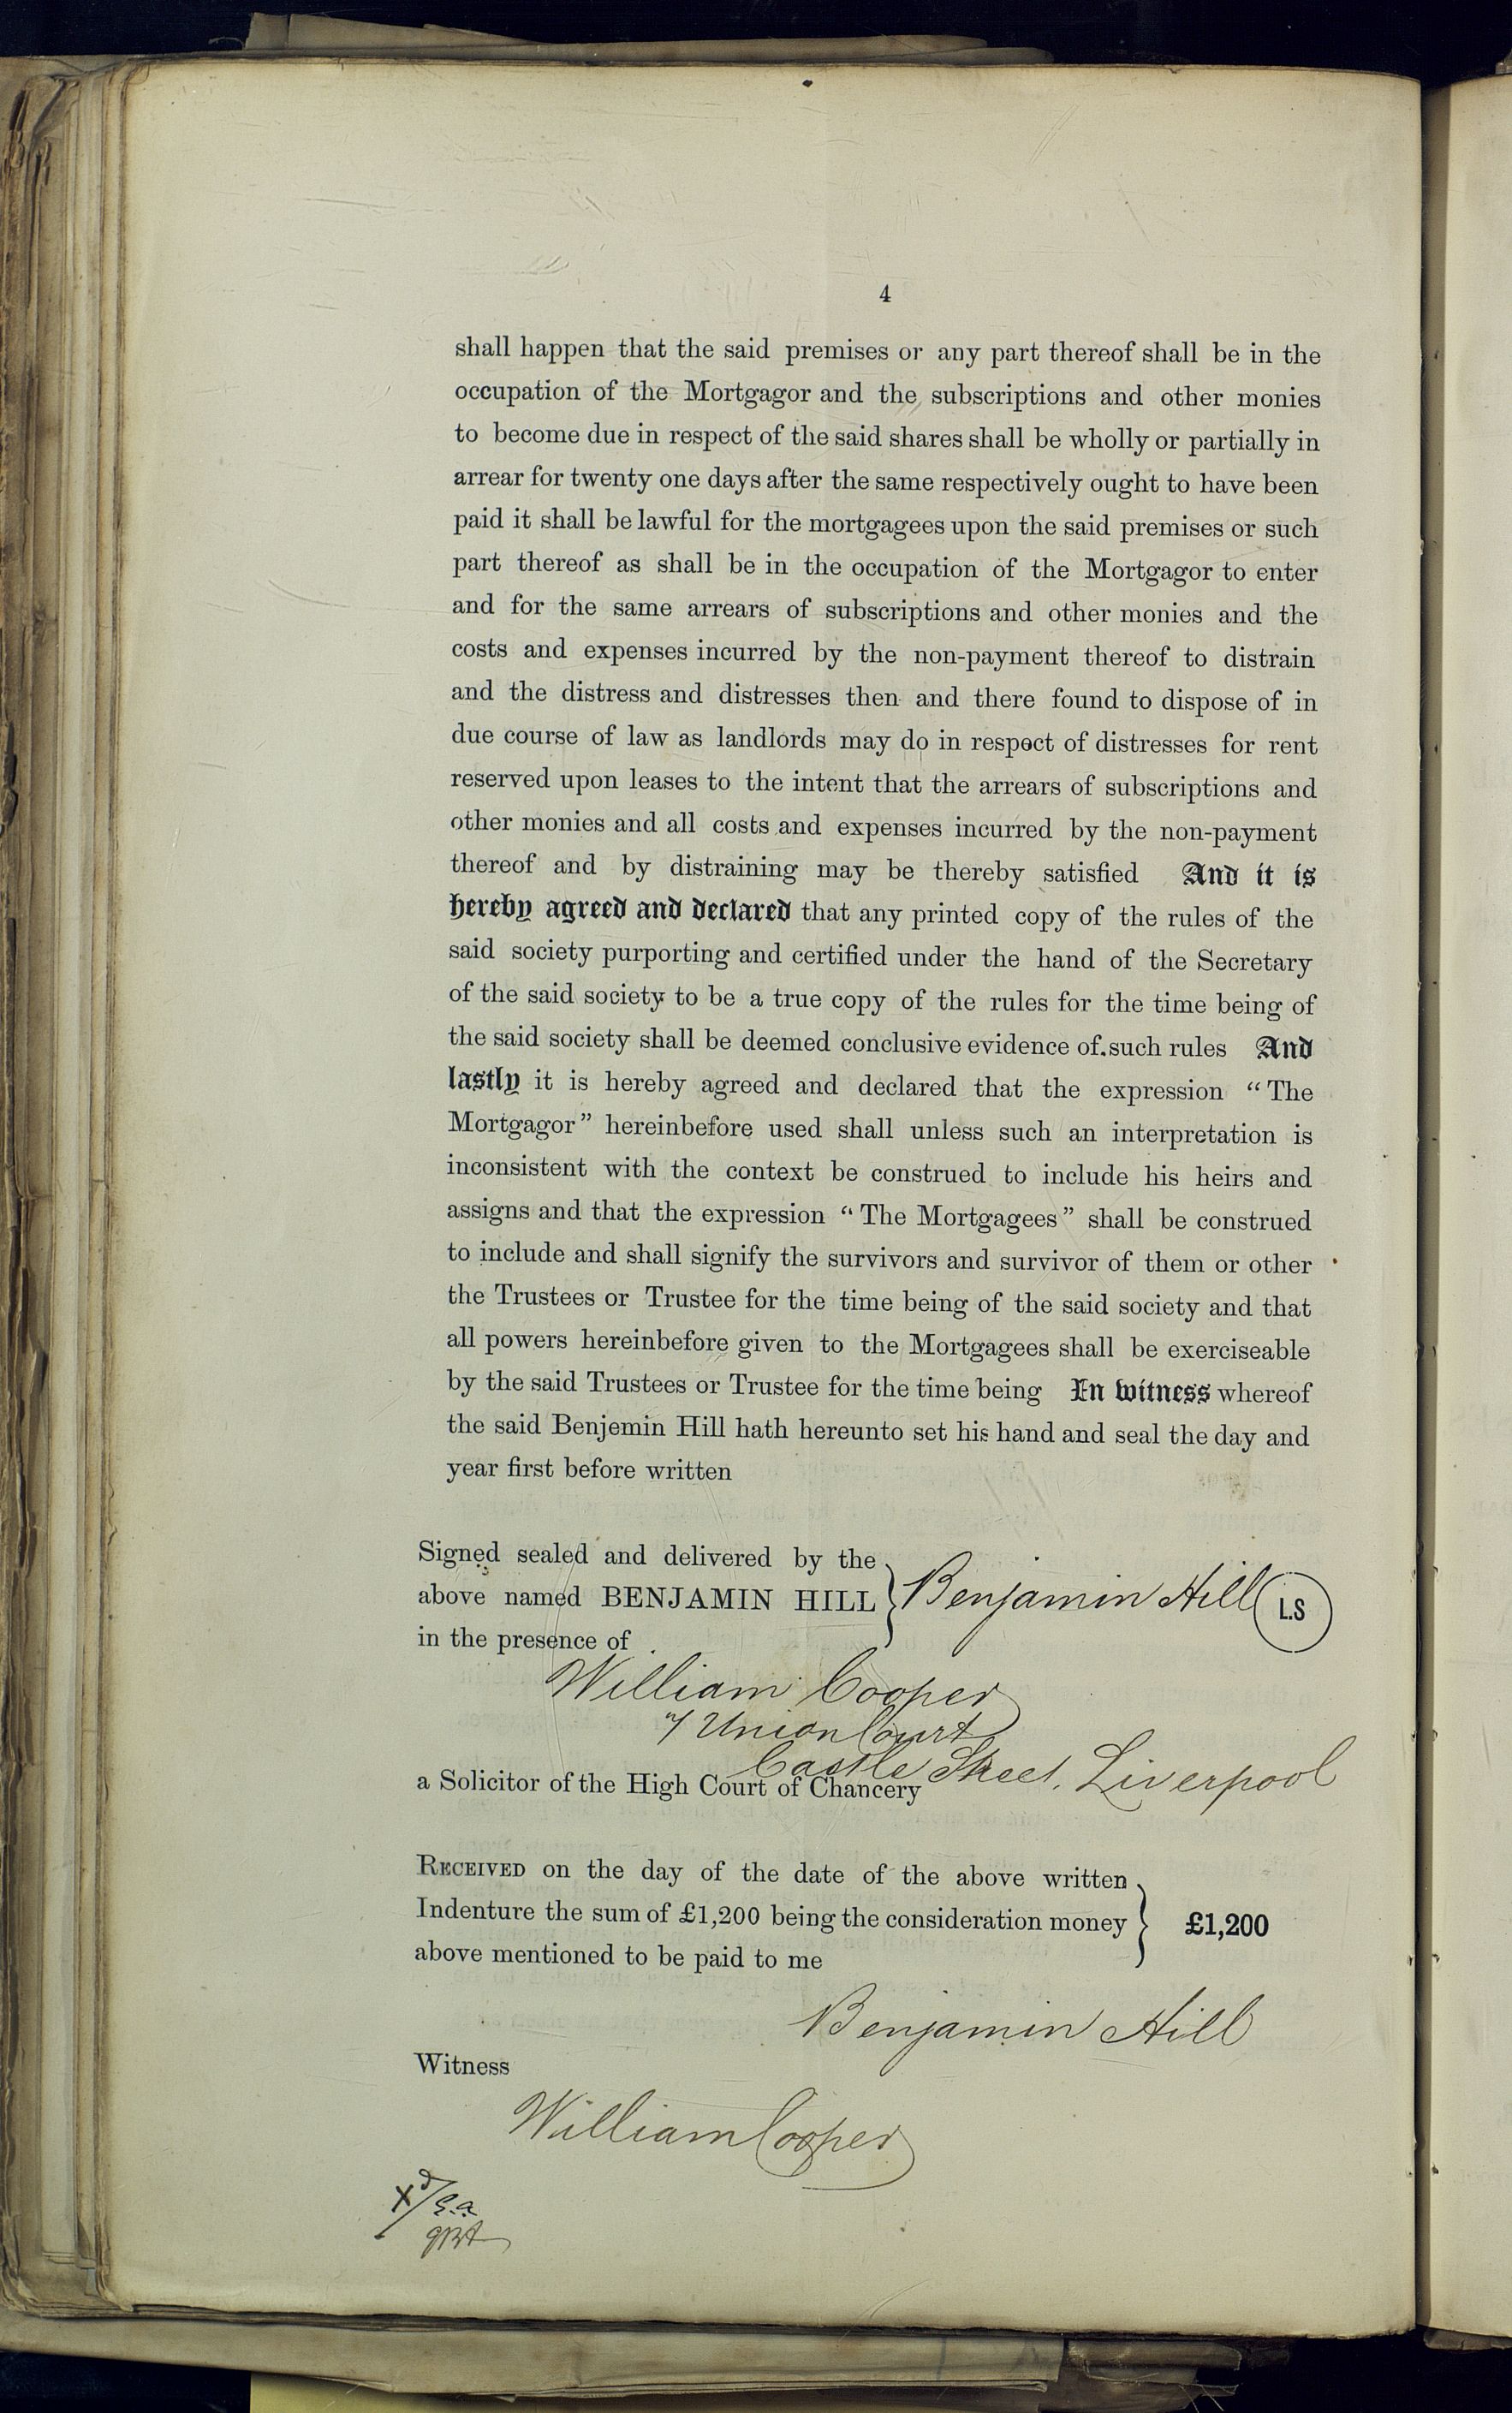 4
shall happen that the said premises or any part thereof shall be in the
occupation of the Mortgagor and the subscriptions and other monies
to become due in respect of the said shares shall be wholly or partially in
arrear for twenty one days after the same respectively ought to have been
paid it shall be lawful for the mortgagees upon the said premises or such
part thereof as shall be in the occupation of the Mortgagor to enter
and for the same arrears of subscriptions and other monies and the
costs and expenses incurred by the non-payment thereof to distrain
and the distress and distresses then and there found to dispose of in
due course of law as landlords may do in respect of distresses for rent
reserved upon leases to the intent that the arrears of subscriptions and
other monies and all costs and expenses incurred by the non-payment
thereof and by distraining may be thereby satisfied And it is
hereby agreed and declared that any printed copy of the rules of the
said society purporting and certified under the hand of the Secretary
of the said society to be a true copy of the rules for the time being of
the said society shall be deemed conclusive evidence of such rules And
lastly it is hereby agreed and declared that the expression “The
Mortgagor” hereinbefore used shall unless such an interpretation is
inconsistent with the context be construed to include his heirs and
assigns and that the expression “The Mortgagees” shall be construed
to include and shall signify the survivors and survivor of them or other
the Trustees or Trustee for the time being of the said society and that
all powers hereinbefore given to the Mortgagees shall be exerciseable
by the said Trustees or Trustee for the time being In witness whereof
the said Benjemin Hill hath hereunto set his hand and seal the day and
year first before written
Signed sealed and delivered by the
above named BENJAMIN HILL Benjamin Hill L.S
in the presence of
William Cooper
Union Court
Castle Street, Liverpool
a Solicitor of the High Court of Chancery
RECEIVED on the day of the date of the above written
Indenture the sum of £1,200 being the consideration money £1,200
above mentioned to be paid to me
Benjamin Hill
Witness
William Cooper